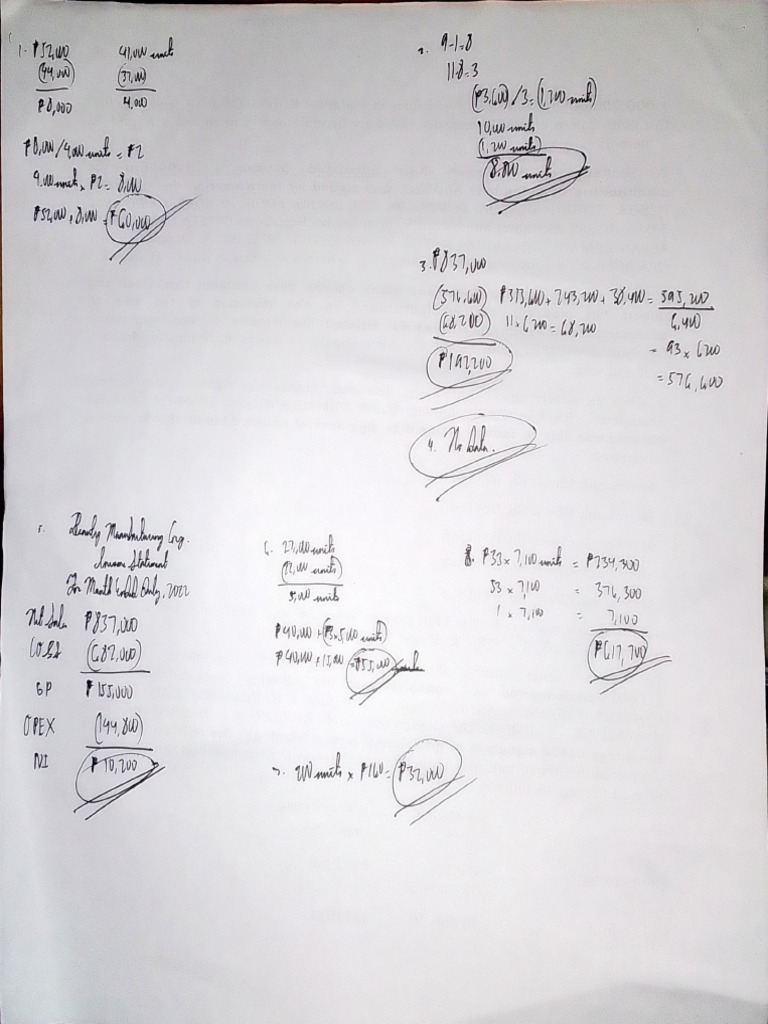 1. ₱52,000 41,000 units
(44,000) (37,000)
₱8,000 4,000
₱8,000/4,000 units = ₱2
4,000 units × ₱2 = 8,000
₱52,000 + 8,000 = ₱60,000
2. 9-1=8
11-8=3
(₱3,600)/3=(1,200 units)
10,000 units
(1,200 units)
8,800 units
3. ₱837,000
(576,600) ₱313,600 + 243,200 + 38,400 = 595,200
(68,200) 11 × 6200 = 68,200 6,400
₱192,200 = 93 × 6200
= 576,600
4.
5. Manufacturing Corp.
Income Statement
For Month Ended July, 2022
Net Sales ₱837,000
COGS (682,000)
GP ₱155,000
OPEX (144,800)
NI ₱10,200
6. 27,000 units
(22,000 units)
5,000 units
₱40,000 + (₱3 × 5,000 units)
₱40,000 + 15,000 = ₱55,000
7. 200 units × ₱160 = ₱32,000
8. ₱33 × 7,100 units = ₱234,300
53 × 7,100 = 376,300
1 × 7,100 = 7,100
₱617,700